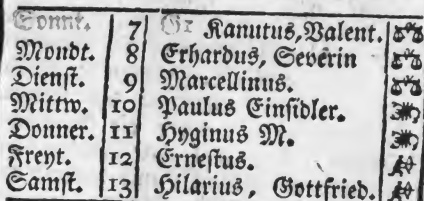 Sonnt. 7 Gr Kanutus, Valent.
Mondt. 8 Erhardus, Severin
Dienst. 9 Marcellinus.
Mittw. 10 Paulus Einsidler.
Donner. 11 Hyginus M.
Freyt. 12 Ernestus.
Samst. 13 Hilarius, Gottfried.